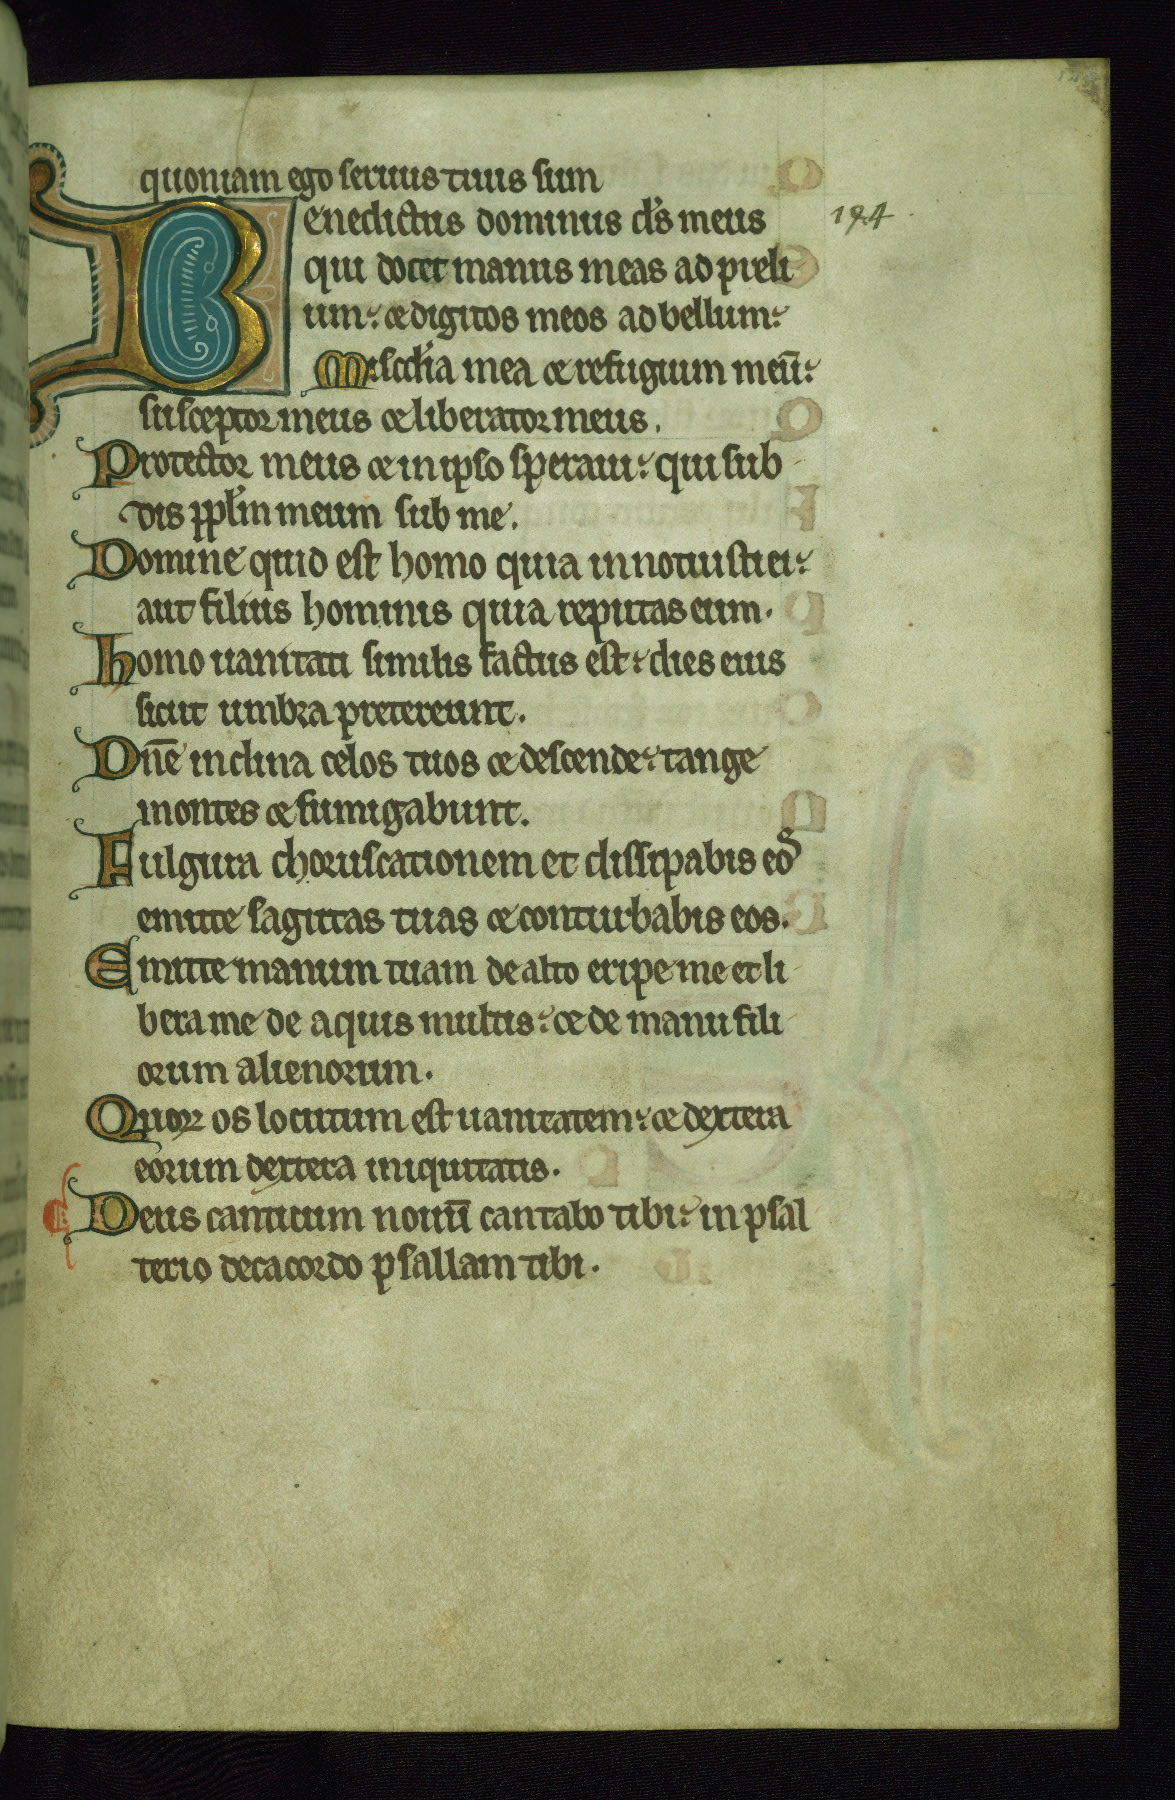 quoniam ego seruus tuus sum
Benedictus dominus ds̄ meus
194
qui docet manus meas ad preli
um: et digitos meos ad bellum:
Miscdīa mea et refugium meū:
susceptor meus et liberator meus.
Protector meus et in ipso speraui: qui sub
dis pplm̄ meum sub me.
Domine quid est homo quia innotuisti ei:
aut filius hominis quia reputas eum.
Homo uanitati similis factus est: dies eius
sicut umbra pretereunt.
Dn̄e inclina celos tuos et descende: tange
montes et fumigabunt.
Fulgura choruscationem et dissipabis eos
emitte sagittas tuas et conturbabis eos.
Emitte manum tuam de alto eripe me et li
bera me de aquis multis: et de manu fili
orum alienorum.
Quor os locutum est uanitatem: et dextera
eorum dextera iniquitatis.
Deus canticum nouū cantabo tibi: in psal
terio decacordo psallam tibi.